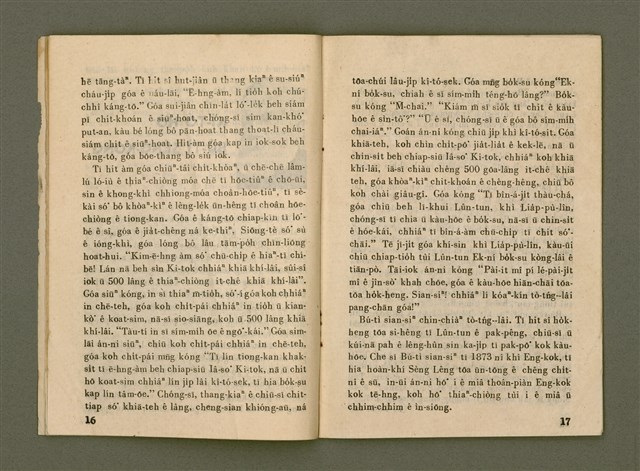 hē tāng-tàⁿ. Tī hit sî hut-jiân ū thang kìaⁿ ê su-siúⁿ
cháu-ji̍p góa ê náu-lāi, "E-hng-àm, lí tio̍h koh chú-
chhî káng-tō." Góa sui-jiân chin-la̍t ló͘-le̍k beh siám
pī chit-khoán ê siūⁿ-hoat, chóng-sī sim kan-khó͘
put-an, kàu bé lóng bô pān-hoat thang thoat-lī chàu-
siám chit ê siūⁿ-hoat. Hit-àm góa kap in iok-sok beh
káng-tō, góa bóc-thang bô siú iok.
Tī hit àm góa chiūⁿ-tâi chit-khòaⁿ, ū chē-chē lâm-
lú ló-iù ê thiaⁿ-chiòng móa chē tī hōc-tiûⁿ ê chō-ūi,
sin ê khong-khì chhiong-móa choân-hōe-tiûⁿ, tī sè-
kài só͘ bô khòaⁿ-kìⁿ ê lêng-le̍k ūn-hêng tī choân hōe-
chiòng ê tiong-kan. Góa ê káng-tō chiap-kīn tī ló͘-
bé ê sî, góa ê jia̍t-chêng ná ke-thiⁿ. Siōng-tè só͘ sù
ê ióng-khì, góa lóng bô lâu tām-po̍h chīn-liōng
hoat-hui. "Kim-ê-hng àm só͘ chū-chi̍p ê hiaⁿ-tī chí-
bē! Lán nā beh sìn Ki-tok chhiáⁿ khiā khí-lâi, sûi-sî
iok ū 500 lâng ê thiaⁿ-chiòng it-chê khiā khí-lâi".
Góa siūⁿ kóng, in sī thiaⁿ m̄-tio̍h, só͘-í góa koh chhiáⁿ
in chē-teh, góa koh chi̍t-pái chhiáⁿ in tio̍h ū kian-
kò͘ ê koat-sim, nā-sī sio-siāng, koh ū 500 lâng khiā
khí-lâi. "Tàu-tí in sī sím-mi̍h òe ê ngō͘-kái." Góa sim-
lāi án-ni siūⁿ, chiū koh chi̍t-pái chhiáⁿ in chē-teh,
góa koh chi̍t-pái mn̄g kóng "Tī lín tiong-kan khak-
si̍t tī ē-hng-àm beh chiap-siū Iâ-so͘ Ki-tok, nā ū chit
hō koat-sim chhiáⁿ lín ji̍p lâi kî-tó-sek, tī hia bo̍k-su
kap lín tâm-ōe." Chóng-sī, thang-kiaⁿ ê chiū-sī chi̍t-
tiap só͘ khiā-teh ê lâng, cheng-sian khióng-āu, ná
16
tōa-chúi lâu-ji̍p kî-tó-sek. Góa mn̄g bo̍k-su kóng "Ek-
nî bo̍k-su, chiah ê sī sím-mi̍h téng-hō lâng?" Bo̍k-
su kóng "M̄-chai." "Kiám m̄ sī sio̍k tī chit ê kàu-
hōe ê sìn-tô͘?" "Ū ê sī, chóng-sī ū ê góa bô sím-mi̍h
chai-iáⁿ." Goán án-ni kóng chiū ji̍p khì kî-tó-sit. Góa
khiā-teh, koh chin chi̍t-pō͘ jia̍t-lia̍t ê kek-lē, nā ū
chin-si̍t beh chiap-siū Iâ-so͘ Ki-tok, chhiáⁿ koh khiā
khí-lâi, iā-sī chiàu chêng 500 góa-lâng it-chē khiā
teh, góa khòaⁿ-kìⁿ chit-khoán ê chêng-hêng, chiū bô
koh chài giâu-gî. Góa kóng "Tī bîn-á-ji̍t thàu-chá,
góa chiū beh lī-khui Lûn-tun, khì Lia̍p-pu-lîn,
chóng-sī tī chia ū kàu-hōe ê bo̍k-su, nā-sī ū chin-si̍t
ê hóe-kái, chhiáⁿ tī bîn-á àm chū-chi̍p tī chit só͘-
chāi." Tē jī-ji̍t góa khí-sin khì Lia̍p-pu-lín, kàu-ūi
chiū chiap-tio̍h tùi Lûn-tun Ek-nî bo̍k-su kóng-lâi ê
tiān-pò. Tāi-iok án-ni kóng "Pài-it mî pí lé-pài-ji̍t
mî ê jîn-sò͘ khah chōe, góa ê kàu-hōe hiān-chāi tōa-
tōa ho̍k-heng. Sian-siⁿ! chhiáⁿ lí kóaⁿ-kín tò-tńg-lâi
pang-chān góa!"
Bū-tí sian-siⁿ chin-chiàⁿ tò-tńg-lâi. Tī hit sî ho̍k-
heng tōa sí-hêng tī Lûn-tun ê pak-pêng, chiū-sī ū
kúi-nā pah ê lêng-hûn sin ka-ji̍p tī pak-pō͘ kok kàu-
hōe. Che sī Bū-tí sian-siⁿ tī 1873 nî khì Eng-kok, tī
hia hoán-khí Sèng Lêng tōa ūn-tōng ê chêng chi̍t-
nî ê sū, in-ūi án-ni hō͘ i ê miâ thoân-piàn Eng-kok
kok tē-hng, koh hō͘ thiaⁿ-chiòng tùi i ê miâ ū
chhim-chhim ê ìn-siōng.
17